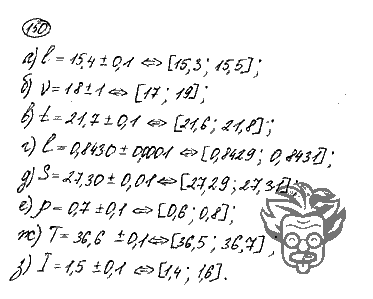 150
а) l = 15,4 ± 0,1 ⇔ [15,3 ; 15,5] ;
б) v = 18 ± 1 ⇔ [17 ; 19] ;
в) t = 21,7 ± 0,1 ⇔ [21,6 ; 21,8] ;
г) l = 0,8430 ± 0,0001 ⇔ [0,8429 ; 0,8431] ;
д) S = 27,30 ± 0,01 ⇔ [27,29 ; 27,31] ;
е) p = 0,7 ± 0,1 ⇔ [0,6 ; 0,8] ;
ж) T = 36,6 ± 0,1 ⇔ [36,5 ; 36,7] ;
з) I = 1,5 ± 0,1 ⇔ [1,4 ; 1,6] .